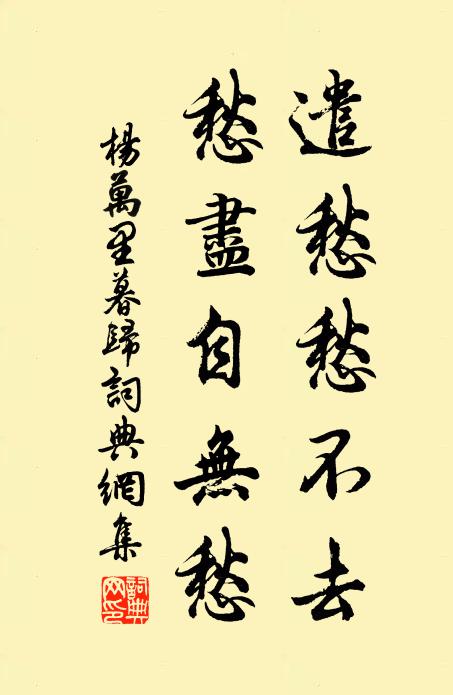 遣愁愁不去
愁盡自無愁
楊萬里暮歸詞典網集
詞典
网印